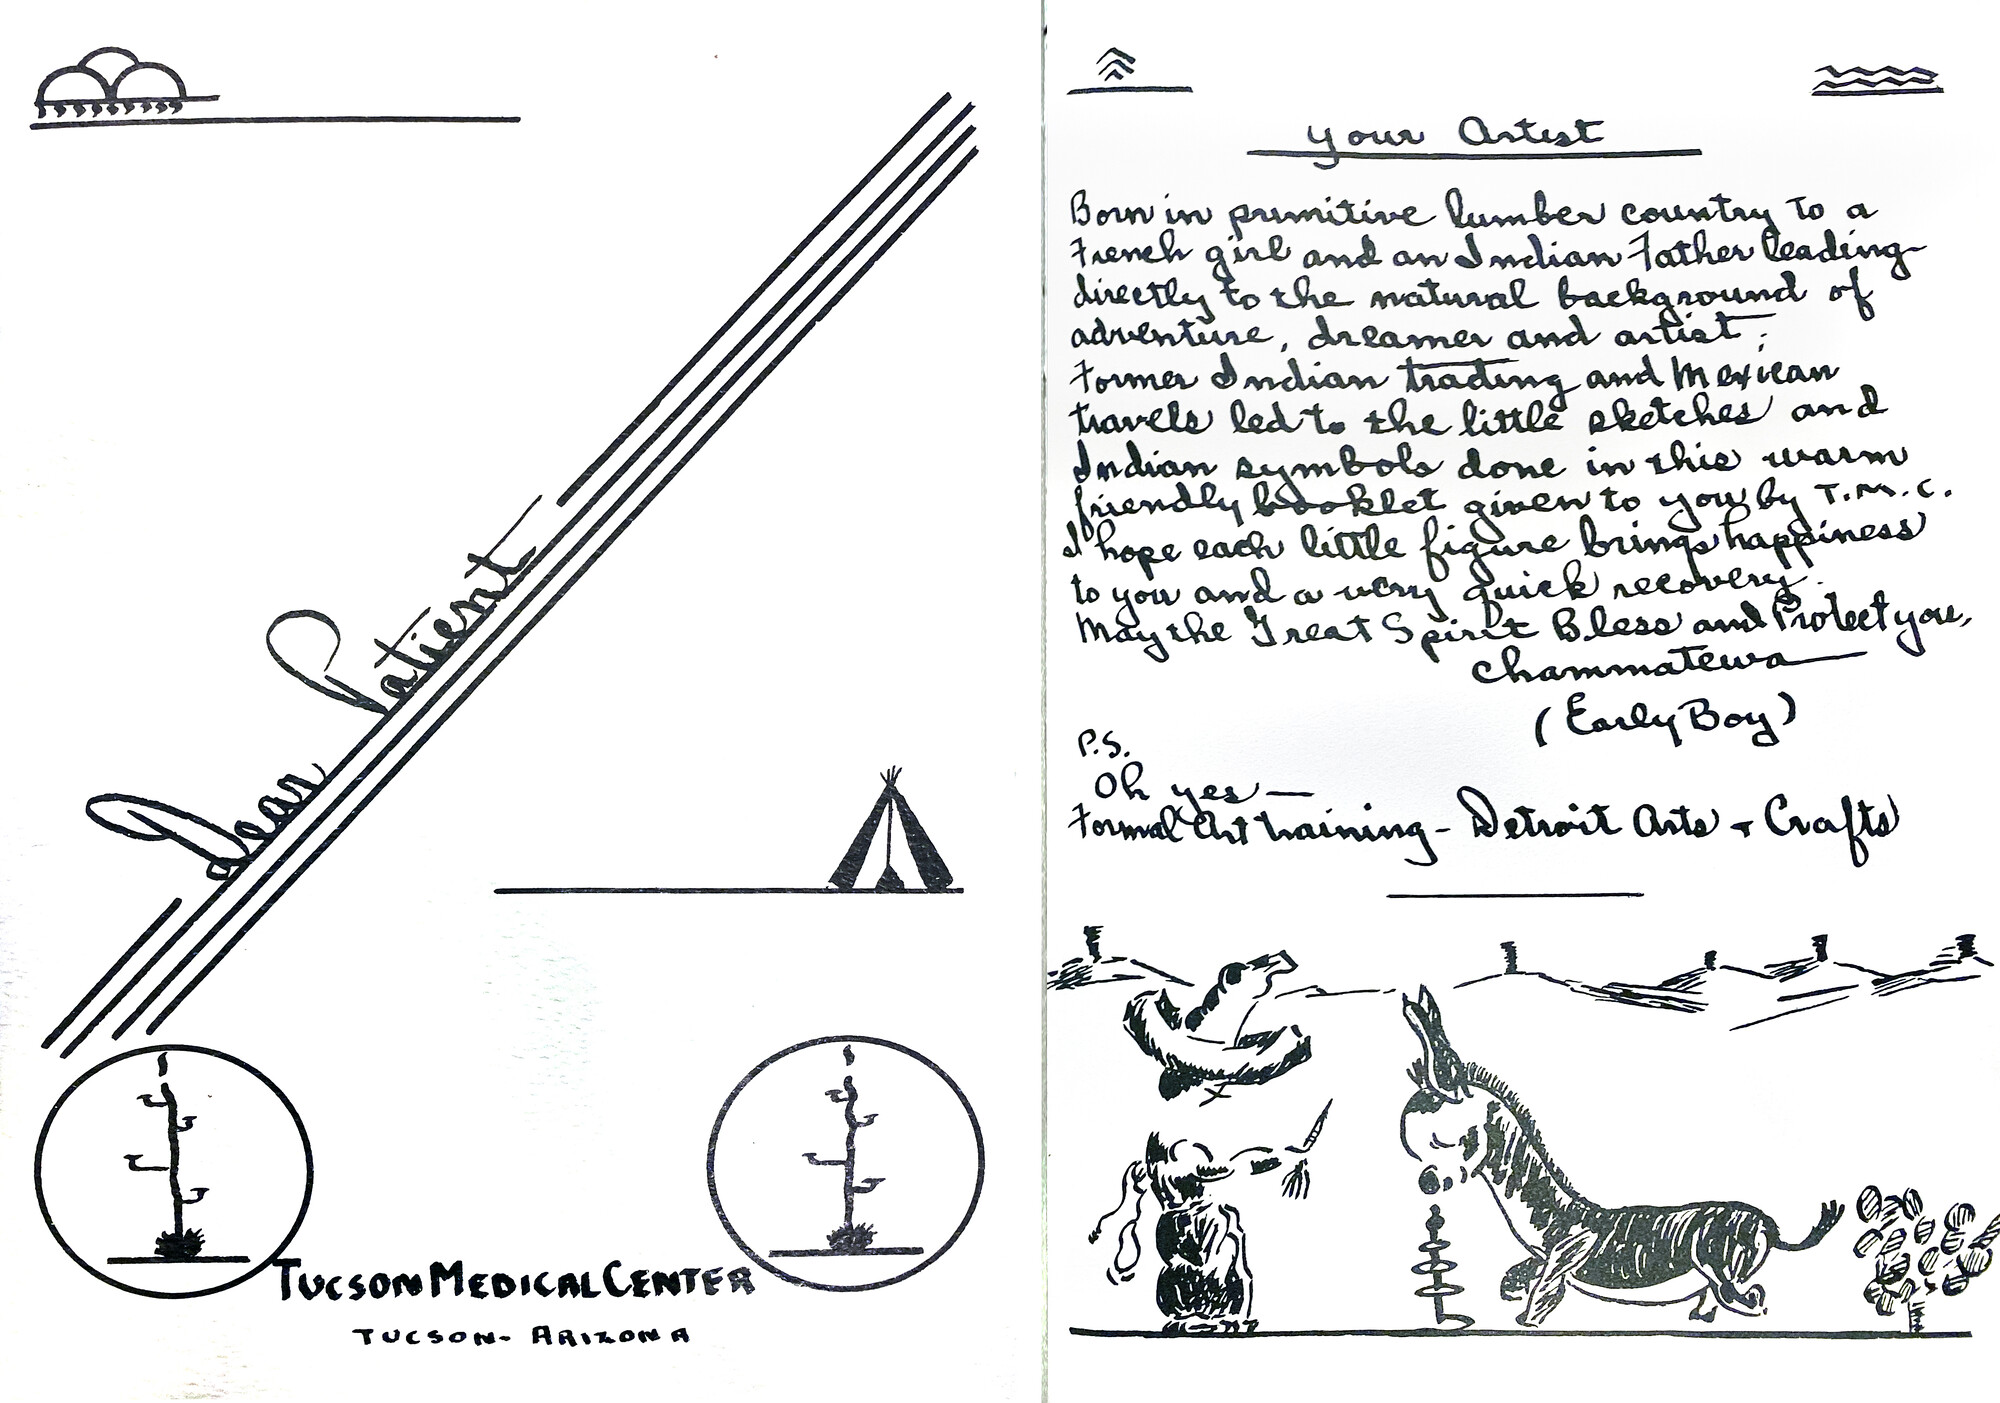 Dear Patient
TUCSON MEDICAL CENTER
TUCSON - ARIZONA
Your Artist
Born in primitive lumber country to a
French girl and an Indian Father leading
directly to the natural background of
adventure, dreamer and artist;
Former Indian trading and Mexican
travels led to the little sketches and
Indian symbols done in this warm
friendly booklet given to you by T.M.C.
I hope each little figure brings happiness
to you and a very quick recovery.
May the Great Spirit Bless and Protect you,
Chammatewa
(Early Boy)
P.S.
Oh yes —
Formal Art training - Detroit Arts + Crafts